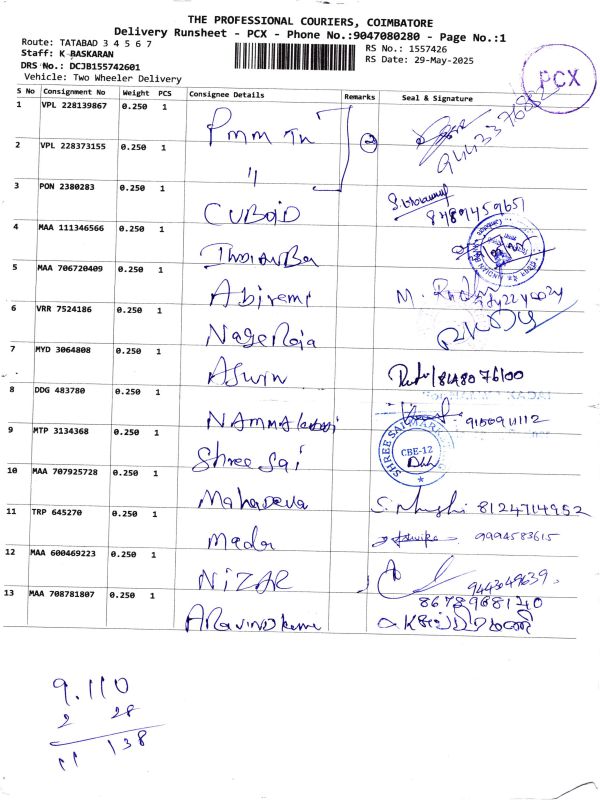 THE PROFESSIONAL COURIERS, COIMBATORE
Delivery Runsheet - PCX - Phone No.:9047080280 - Page No.:1
Route: TATABAD 3 4 5 6 7
Staff: K BASKARAN
DRS No.: DCJB155742601
Vehicle: Two Wheeler Delivery
RS No.: 1557426
RS Date: 29-May-2025
PCX
S No Consignment No Weight PCS Consignee Details Remarks Seal & Signature
1 VPL 228139867 0.250 1 Pmm Tn
2 VPL 228373155 0.250 1 〃 2
3 PON 2380283 0.250 1 CUBOID 8489459651
4 MAA 111346566 0.250 1
5 MAA 706720409 0.250 1 Abiremi
6 VRR 7524186 0.250 1 NageRoja
7 MYD 3064808 0.250 1 Aswin 8148076100
8 DDG 483780 0.250 1 9150911112
9 MTP 3134368 0.250 1 Shree Sai SHREE SAI MARK CBE-12
10 MAA 707925728 0.250 1 Mahadeva 8124714952
11 TRP 645270 0.250 1 9994583615
12 MAA 600469223 0.250 1 NIZAR 9443049639
13 MAA 708781807 0.250 1 8678968140
9.110
2 28
11 138